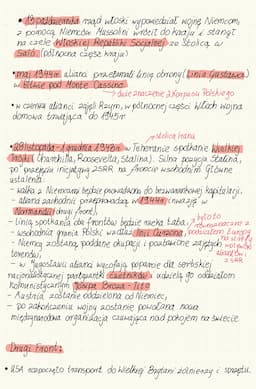 • 13 października rząd włoski wypowiedział wojnę Niemcom,
z pomocą Niemców Mussolini wrócił do kraju i stanął
na czele Włoskiej Republiki Socjalnej ze stolicą w
Salò (północna część kraju)
• maj 1944r. alianci przełamali linię obrony (Linia Gustawa)
w bitwie pod Monte Cassino
duże znaczenie 2 Korpusu Polskiego
• w czerwcu alianci zajęli Rzym, w północnej części Włoch wojna
domowa trwająca do 1945r
stolica Iranu
• 28 listopada - 1 grudnia 1943r. w Teheranie spotkanie Wielkiej
Trójki (Churchilla, Roosevelta, Stalina). Silna pozycja Stalina,
po przejęciu inicjatywy ZSRR na froncie wschodnim. Główne
ustalenia:
- walka z Niemcami będzie prowadzona do bezwarunkowej kapitulacji,
- alianci zachodni przeprowadzą w 1944r. inwazję w
Normandii (drugi front),
- linią spotkania obu frontów będzie rzeka Łaba,
było to
równoznaczne z
podziałem Europy
na strefy
wpływów
aliantów i
ZSRR
- wschodnia granica Polski wzdłuż linii Curzona,
- Niemcy zostaną poddane okupacji i pozbawione zajętych
terenów,
- w Jugosławii alianci wycofają poparcie dla serbskiej
nacjonalistycznej partyzantki czetników i udzielą go oddziałom
komunistycznym Josipa Broza - Tito
- Austria zostanie oddzielona od Niemiec,
- po zakończeniu wojny zostanie powołana nowa
międzynarodowa organizacja czuwająca nad pokojem na świecie
Drugi Front:
• USA rozpoczęło transport do Wielkiej Brytanii żołnierzy i sprzętu.